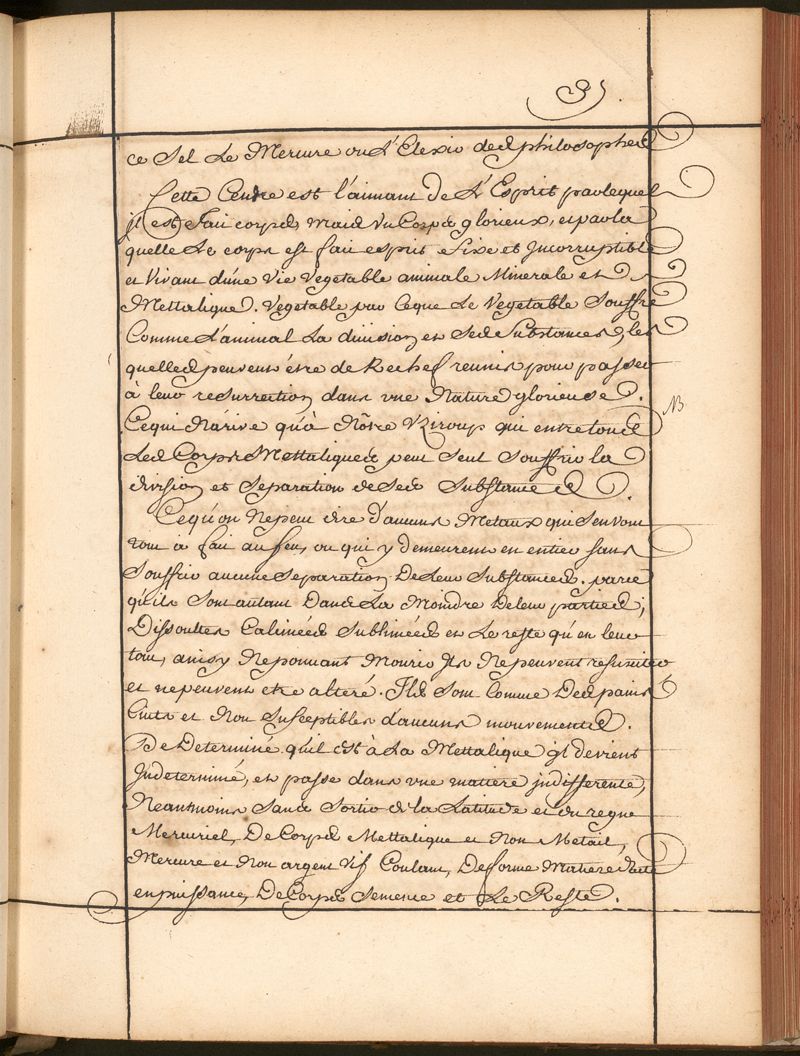 ce Sel Le Mercure ou L'Elexir des philosophes
Cette Cendre est l'aimant de L'Esprit par lequel
jl est fait corps, mais vn Corps glorieux, et par la
quelle Le corps est fait esprit fixe et Jncorruptible
et Vivant d'une vie vegetable animale Minerale et
Mettalique. Vegetable par ceque Le Vegetable souffre
Comme L'animal La division en ses substances, les
quelles peuvent être de Rechef reunis pour passer
à leur resurrection dans vne Nature glorieuse.
Cequi N'arive qu'à Nôtre qui entre tous
Les Corps Mettaliques peut seul souffrir la
division et separation de ses substances.
NB
Cequ'on Nepeut dire d'aucuns Metaux qui s'en vont
tout à fait au feu, ou qui y demeurent en entier sans
souffrir aucune separation De leur substances. parce
qu'ils sont autant Dans La Moindre De leur parties,
Dissoultes Calinées sublimées et Le reste qu'en leur
tout, ainsy Nepouuant Mourir Jls Nepeuvent resusiter
et nepeuvent etre alteré. Jls sont comme Des pains
Cuits et Non susceptibles d'aucuns mouvements.
De Determiné qu'il est à La Mettalique jl devient
Jndeterminé, et passe dans vne matiere jndifferente,
Neantmoins sans sortir de la Latitude et du regne
Mercuriel, De Corps Mettalique et Non Metail,
Mercure et Non argent vif Coulant, De forme Matiere
en puissance, De Corps semence et Le Reste.